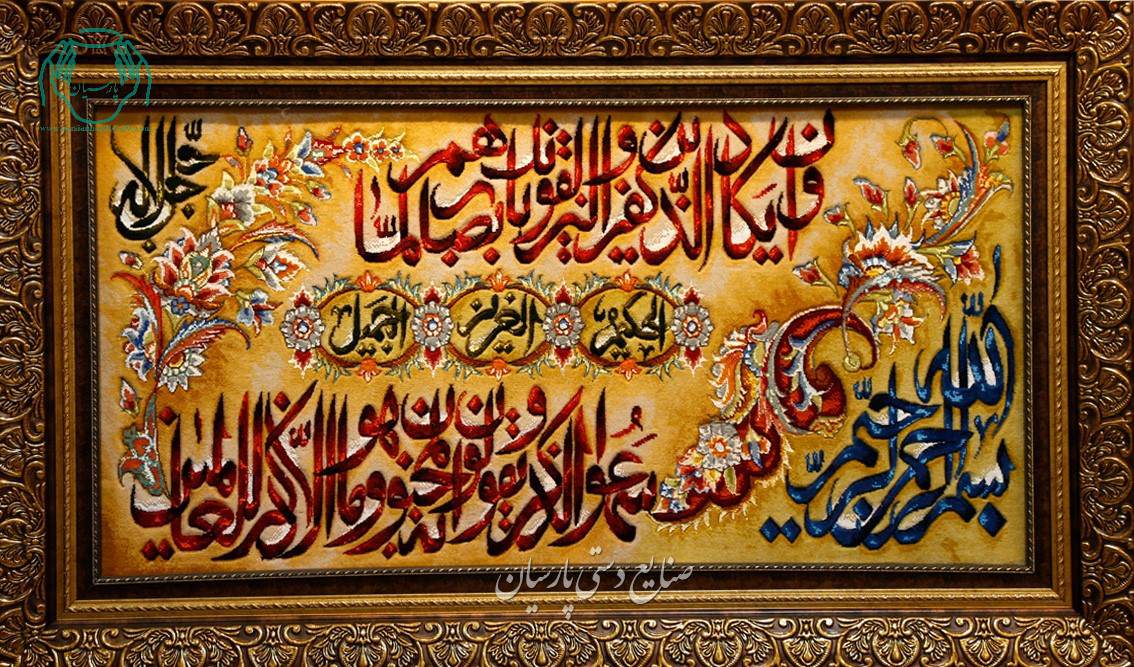 بسم الله الرحمن الرحیم
وان یکاد الذین کفروا لیزلقونک بابصارهم لما
سمعوا الذکر و یقولون انه لمجنون و ما هو الا ذکر للعالمین
الحکیم
العزیز
الجمیل
جل جلاله
پارسیان
صنایع دستی پارسیان